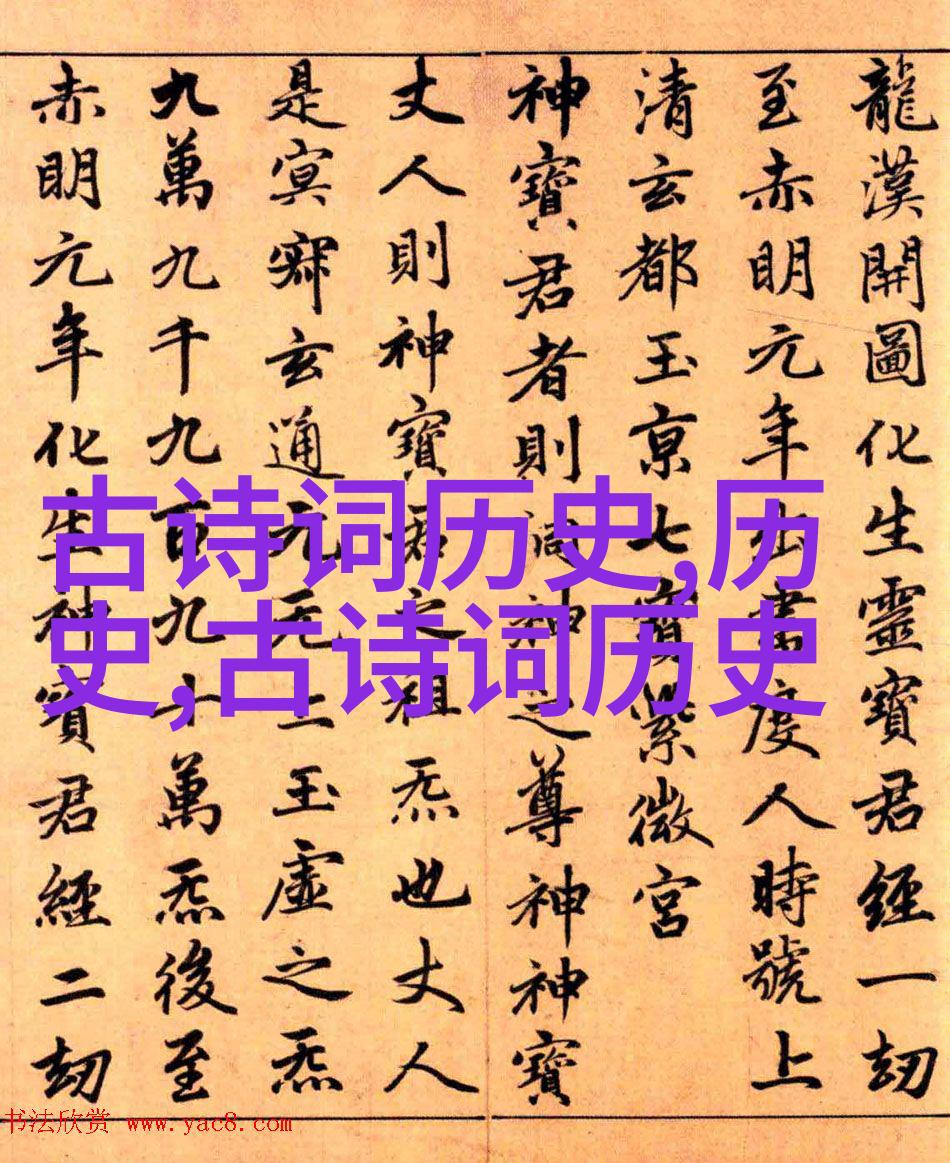 龍漢開圖化生靈寶君經一劫
至赤明元年出書度人時號上
清玄都玉京七寶紫微宮
神寶君者則洞神之尊神神寶
丈人則神寶君之祖炁也丈人
是冥寂玄通元无上玉虛之炁
九萬九千九百九十萬炁後至
赤明元年化生神寶君經二劫
古诗词历史,历
史,古诗词历史
书法欣赏 www.yac8.com